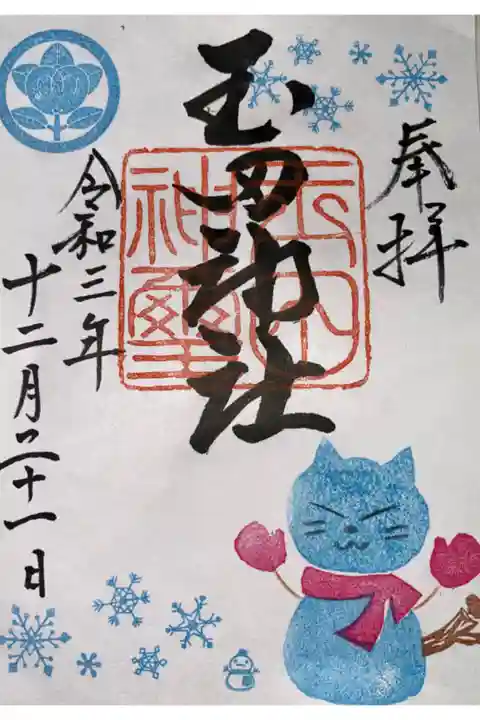 奉拝
玉田神社
玉田
神璽
令和三年
十二月二十一日